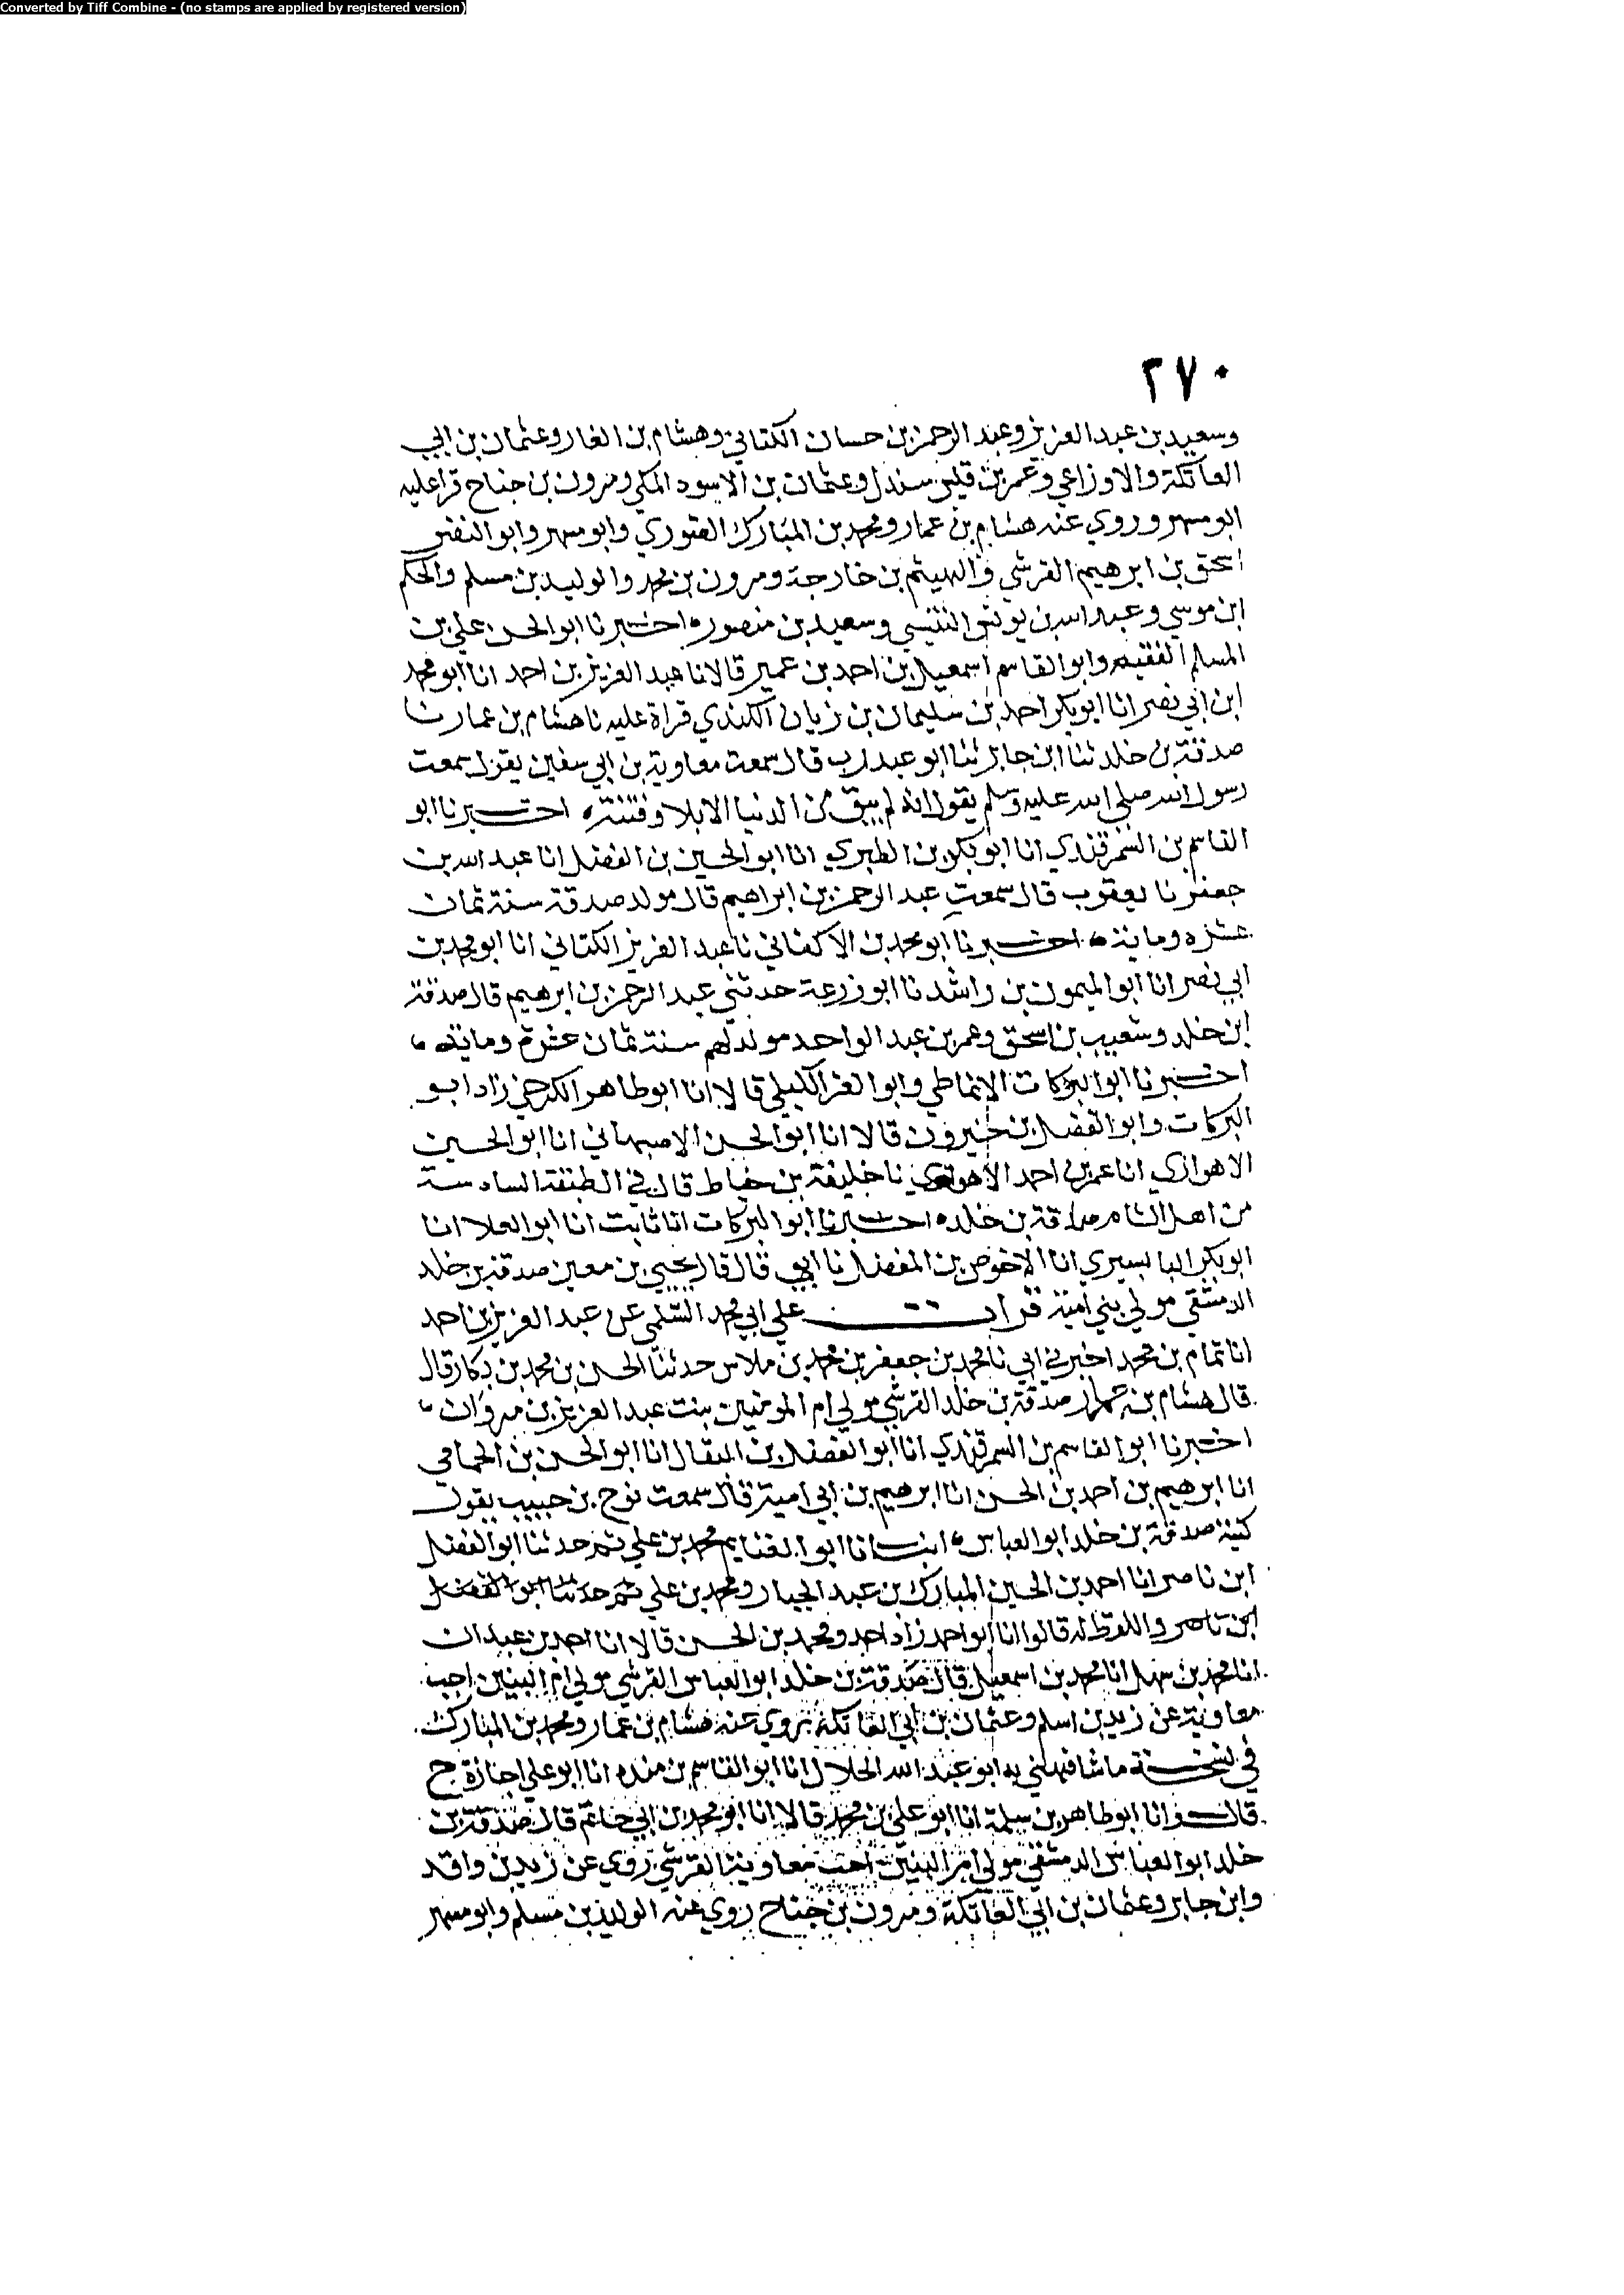 Converted by Tiff Combine - (no stamps are applied by registered version)
٢٧٠
وسعيد بن عبد العزيز وعبد الرحمن بن حسان الكتاني وهشام بن الغار وعثمان بن ابي
العاتكة والاوزاعي وعمر بن قيس سندل وعثمان بن الاسود المكي ومرون بن جناح قرا عليه
ابو مسهر وروي عنه هشام بن عمار ومحمد بن المبارك الصوري وابو مسهر وابو النضر
اسحق بن ابرهيم القرشي والهيثم بن خارجة ومرون بن محمد والوليد بن مسلم والحكم
ابن موسي وعبد الله بن يوسف التنيسي وسعيد بن منصور ه اخبرنا ابو الحسن علي بن
المسلم الفقيه وابو القاسم اسمعيل بن احمد بن عمير قالا نا عبد العزيز بن احمد انا ابو محمد
ابن ابي نصر انا ابو بكر احمد بن سليمان بن زبان الكندي قراة عليه نا هشام بن عمار نا
صدقة بن خلد ثنا ابن جابر ثنا ابو عبد رب قال سمعت معاوية بن ابي سفين يقول سمعت
رسول الله صلي الله عليه وسلم يقول انه لم يبق من الدنيا الا بلا وفتنة ه اخبرنا ابو
القاسم بن السمرقندي انا ابو بكر بن الطبري انا ابو الحسين بن الفضل انا عبد الله بن
جعفر نا يعقوب قال سمعت عبد الرحمن بن ابراهيم قال مولد صدقة سنة ثمان
عشره وماية ه اخبرنا ابو محمد بن الاكفاني نا عبد العزيز الكتاني انا ابو محمد بن
ابي نصر انا ابو الميمون بن راشد نا ابو زرعة حدثني عبد الرحمن بن ابرهيم قال صدقة
ابن خلد وشعيب بن اسحق وعمر بن عبد الواحد مولدهم سنة ثمان عشرة وماية ه
اخبرنا ابو البركات الانماطي وابو العز الكيلي قالا انا ابو طاهر الكرخي زاد ابو
البركات وابو الفضل بن خيرون قالا انا ابو الحسن الاصبهاني انا ابو الحسين
الاهوازي انا عمر بن احمد الاهوازي نا خليفة بن خياط قال في الطبقة السادسة
من اهل الشام صدقة بن خلد ه اخبرنا ابو البركات انا ثابت انا ابو العلا انا
ابو بكر البابسيري انا الاحوص بن المفضل نا ابي قال قال يحيي بن معين صدقة بن خلد
الدمشقي مولي بني امية قرات علي ابي محمد السلمي عن عبد العزيز بن احمد
انا تمام بن محمد اخبرني ابي نا محمد بن جعفر بن محمد بن ملاس حدثنا الحسن بن محمد بن بكار قال
قال هشام بن عمار صدقة بن خلد القرشي مولي ام المومنين بنت عبد العزيز بن مروان ه
اخبرنا ابو القاسم بن السمرقندي انا ابو الفضل بن البقال انا ابو الحسن بن الحمامي
انا ابرهيم بن احمد بن الحسن انا ابرهيم بن ابي امية قال سمعت نوح بن حبيب يقول
كنية صدقة بن خلد ابو العباس ه انبانا ابو الغنايم محمد بن علي ثم حدثنا ابو الفضل
ابن ناصر انا احمد بن الحسين المبارك بن عبد الجبار ومحمد بن علي ثم حدثنا ابو الفضل
ابن ناصر واللفظ له قالوا انا ابو احمد زاد احمد ومحمد بن الحسن قالا انا احمد بن عبدان
انا محمد بن سهل انا محمد بن اسمعيل قال صدقة بن خلد ابو العباس القرشي مولي ام البنين اخت
معاوية عن زيد بن اسلم وعثمان بن ابي العاتكة روي عنه هشام بن عمار ومحمد بن المبارك
في نسخة ما شافهني به ابو عبد الله الخلال انا ابو القاسم بن منده انا ابو علي اجازة ح
قال وانا ابو طاهر بن سلمة انا ابو علي بن محمد قالا انا ابو محمد بن ابي حاتم قال صدقة بن
خلد ابو العباس الدمشقي مولي ام البنين اخت معاوية القرشي روي عن زيد بن واقد
وابن جابر وعثمان بن ابي العاتكة ومرون بن جناح روي عنه الوليد بن مسلم وابو مسهر